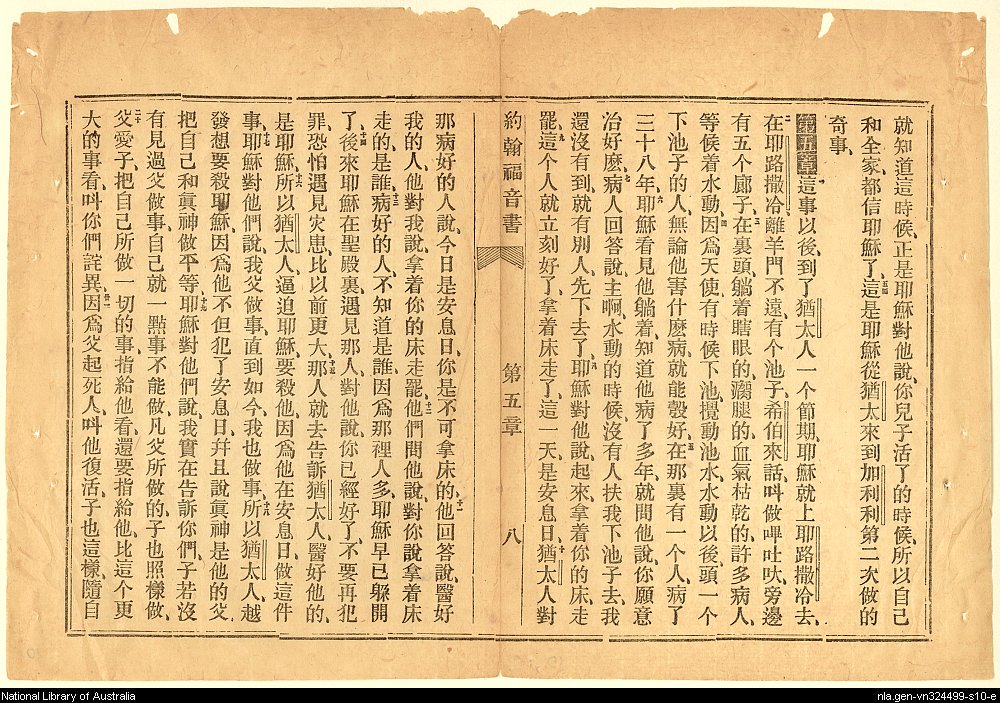 就知道這時候、正是耶穌對他說、你兒子活了的時候、所以自己
和全家、都信耶穌了、五四這是耶穌從猶太來到加利利第二次做的
奇事、
第五章一這事以後、到了猶太人一個節期、耶穌就上耶路撒冷去、
二在耶路撒冷離羊門不遠有个池子、希伯來話、叫做嗶吐吙、旁邊
有五个廊子、三在裏頭、躺着瞎眼的、瘸腿的、血氣枯乾的、許多病人、
等候着水動、四因爲天使有時候下池、攪動池水、水動以後、頭一个
下池子的人、無論他害什麽病、就能彀好、五在那裏有一个人、病了
三十八年、六耶穌看見他躺着、知道他病了多年、就問他說、你願意
治好麽、七病人回答說、主啊、水動的時候、沒有人扶我下池子去、我
還沒有到、就有別人先下去了、八耶穌對他說、起來、拿着你的床、走
罷、九這个人就立刻好了、拿着床走了、這一天是安息日、十猶太人對
約翰福音書
第五章
八
那病好的人說、今日是安息日、你是不可拿床的、十一他回答說、醫好
我的人、他對我說、拿着你的床走罷、十二他們問他說、對你說拿着床
走的是誰、十三病好的人、不知道是誰、因爲那裡人多、耶穌早已躱開
了、十四後來耶穌在聖殿裏遇見那人、對他說、你已經好了、不要再犯
罪、恐怕遇見灾患、比以前更大、十五那人就去告訴猶太人、醫好他的、
是耶穌、十六所以猶太人、逼迫耶穌、要殺他、因爲他在安息日、做這件
事、十七耶穌對他們說、我父做事、直到如今、我也做事、十八所以猶太人、越
發想要殺耶穌、因爲他不但犯了安息日、幷且說眞神是他的父、
把自己和眞神做平等、十九耶穌對他們說、我實在告訴你們、子若沒
有見過父做事、自己就一點事不能做、凡父所做的、子也照樣做、
二十父愛子、把自己所做一切的事、指給他看、還要指給他、比這个更
大的事看、叫你們詫異、二一因爲父起死人、叫他復活、子也這樣、隨自
National Library of Australia
nla.gen-vn324499-s10-e